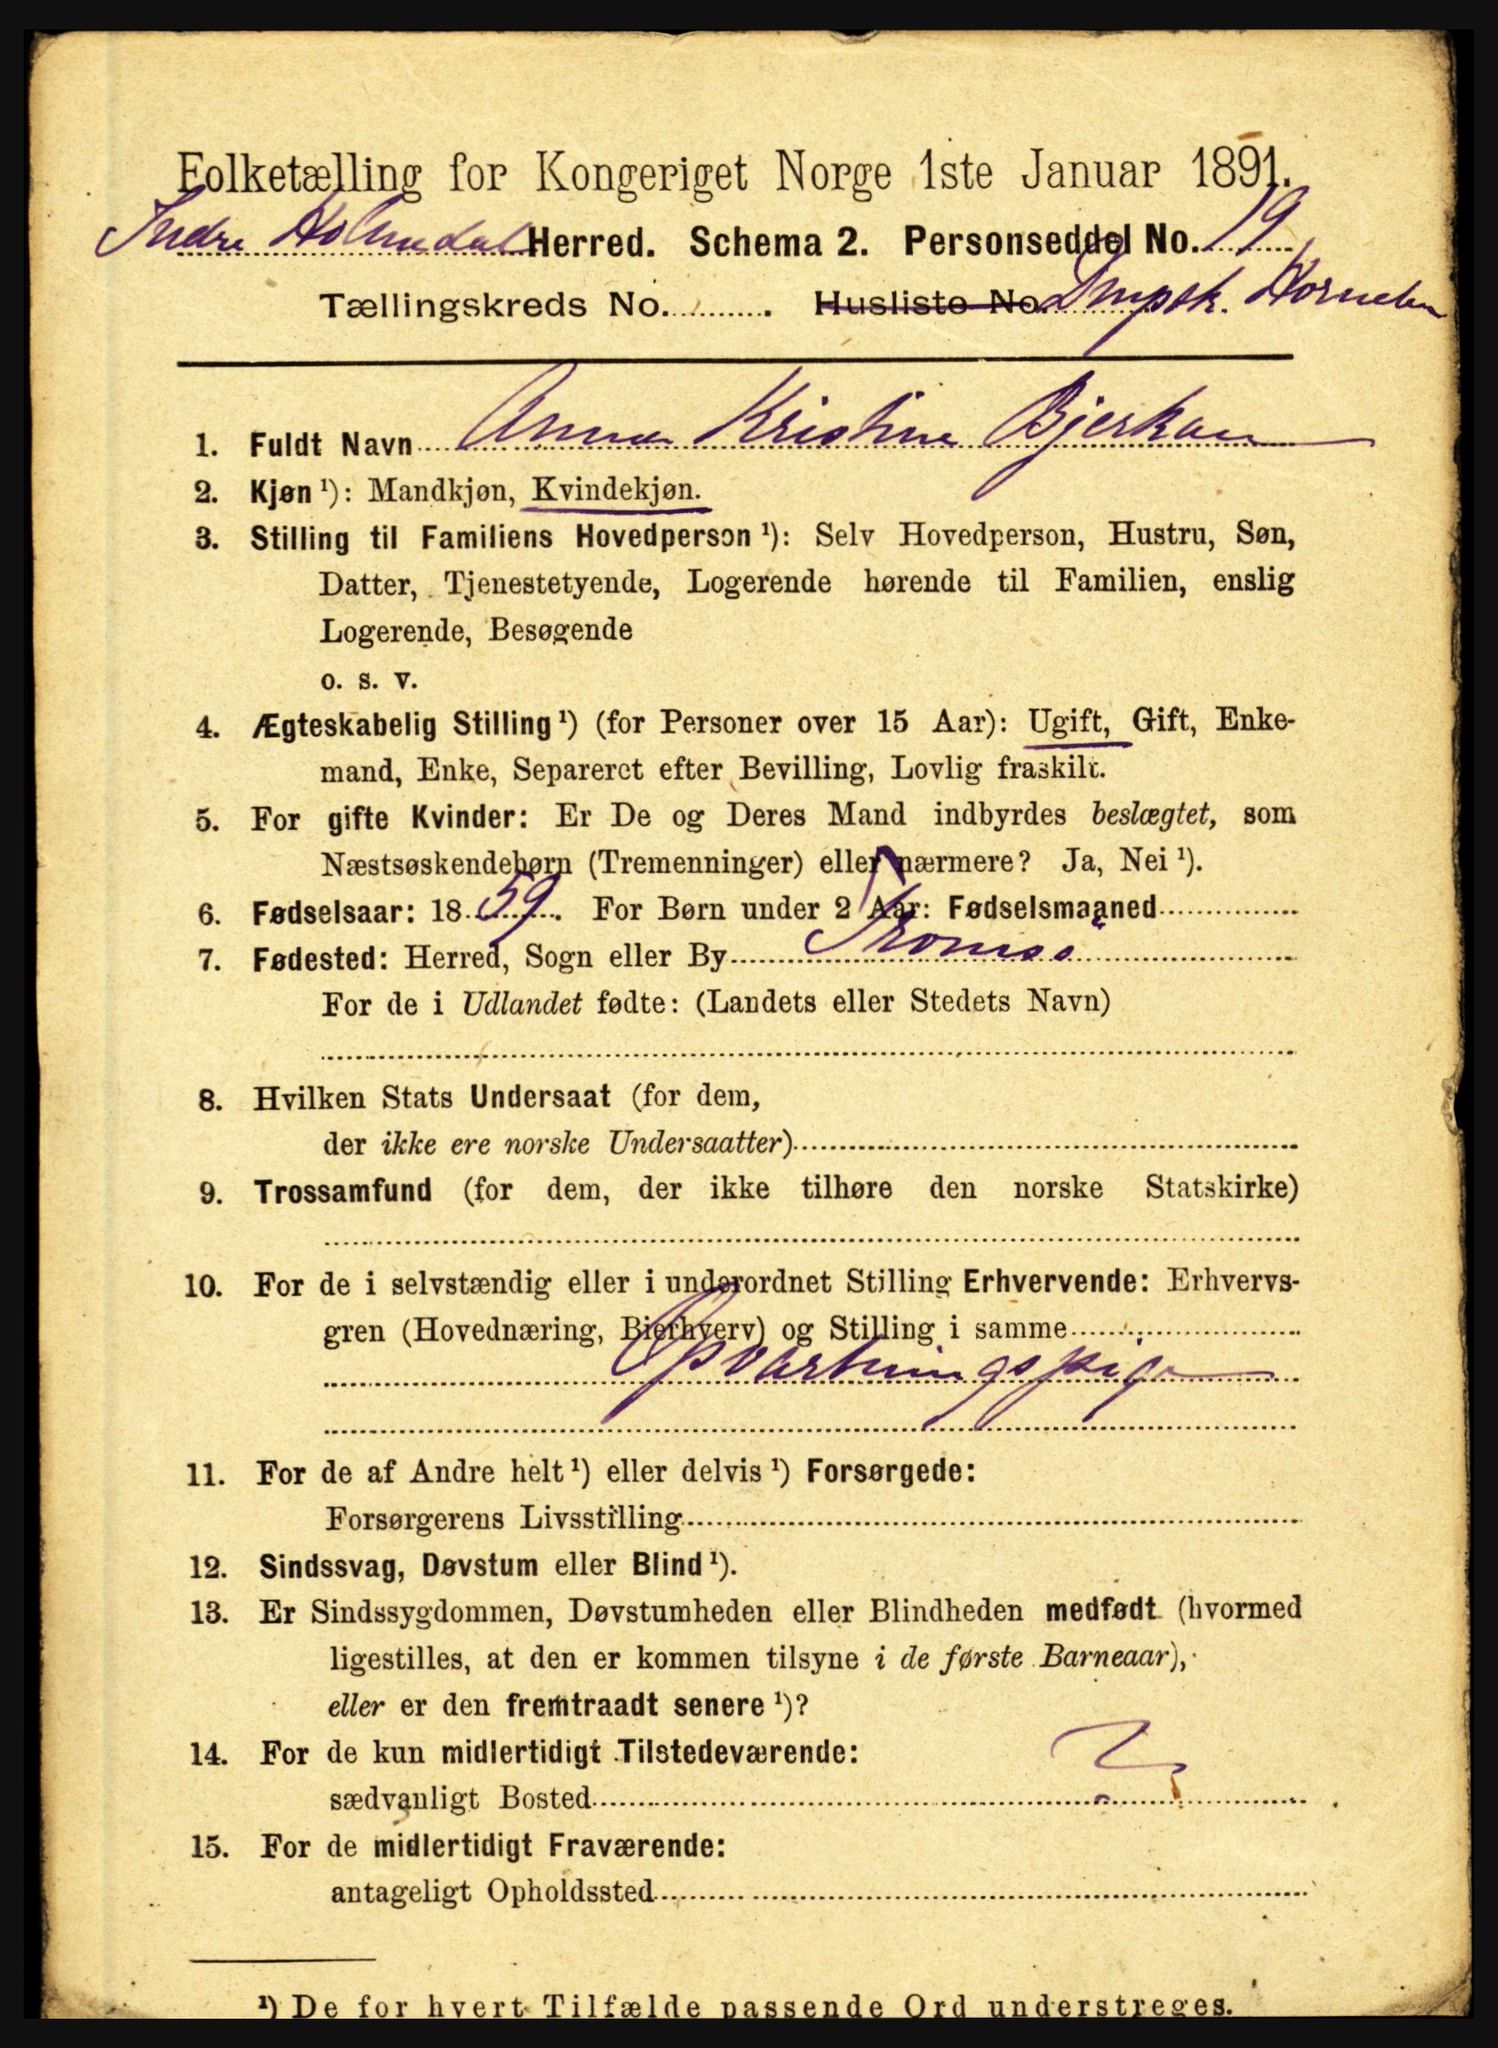 Folketælling for Kongeriget Norge 1ste Januar 1891.
Indre Holmedal Herred. Schema 2. Personseddel No. 19
Tællingskreds No. Husliste No. Dmpsk. Hornelen
1. Fuldt Navn Anna Kristine Bjerkan
2. Kjøn ¹): Mandkjøn, Kvindekjøn.
3. Stilling til Familiens Hovedperson ¹): Selv Hovedperson, Hustru, Søn,
Datter, Tjenestetyende, Logerende hørende til Familien, enslig
Logerende, Besøgende
o. s. v.
4. Ægteskabelig Stilling ¹) (for Personer over 15 Aar): Ugift, Gift, Enke-
mand, Enke, Separeret efter Bevilling, Lovlig fraskilt.
5. For gifte Kvinder: Er De og Deres Mand indbyrdes beslægtet, som
Næstsøskendebørn (Tremenninger) eller nærmere? Ja, Nei ¹).
6. Fødselsaar: 1859. For Børn under 2 Aar: Fødselsmaaned
7. Fødested: Herred, Sogn eller By Tromsö
For de i Udlandet fødte: (Landets eller Stedets Navn)
8. Hvilken Stats Undersaat (for dem,
der ikke ere norske Undersaatter)
9. Trossamfund (for dem, der ikke tilhøre den norske Statskirke)
10. For de i selvstændig eller i underordnet Stilling Erhvervende: Erhvervs-
gren (Hovednæring, Bierhverv) og Stilling i samme
Opvartningspige
11. For de af Andre helt ¹) eller delvis ¹) Forsørgede:
Forsørgerens Livsstilling
12. Sindssvag, Døvstum eller Blind ¹).
13. Er Sindssygdommen, Døvstumheden eller Blindheden medfødt (hvormed
ligestilles, at den er kommen tilsyne i de første Barneaar),
eller er den fremtraadt senere ¹)?
14. For de kun midlertidigt Tilstedeværende:
sædvanligt Bosted ?
15. For de midlertidigt Fraværende:
antageligt Opholdssted
¹) De for hvert Tilfælde passende Ord understreges.